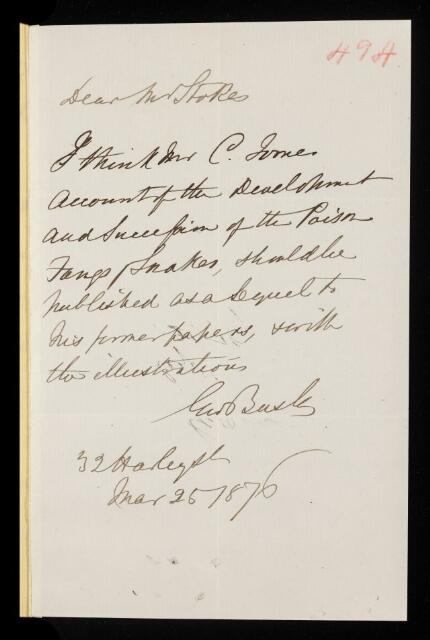 494
Dear Mr Stokes
I think Mr C. Tomes
Account of the Development
and Succession of the Poison
Fangs of Snakes, should be
published as a sequel to
his former papers, & with
the illustrations
Geo Busk
32 Harley St
Mar 25 1876